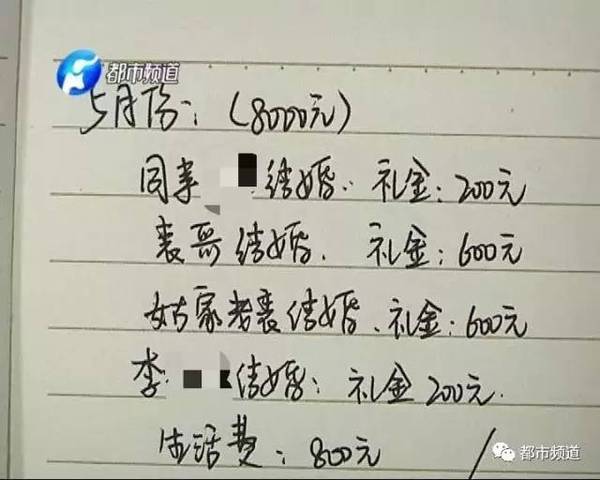 都市频道
5月份：（8000元）
同事 结婚．礼金：200元
表哥结婚． 礼金：600元
姑家老表结婚．礼金：600元
李 结婚：礼金200元．
生活费：800元
都市频道